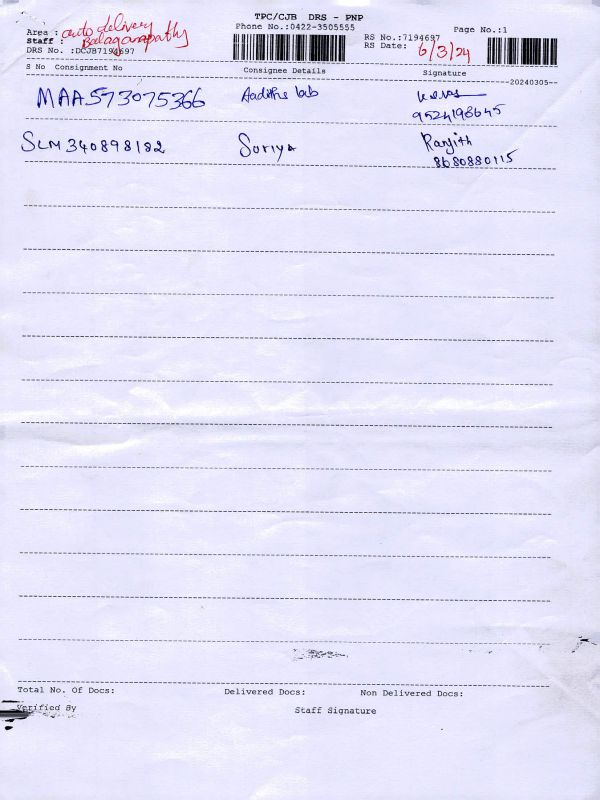 TPC/CJB DRS - PNP
Phone No.:0422-3505555
Page No.:1
Area : auto delivery
Staff :
DRS No. :DCJB7194697
RS No.:7194697
RS Date: 6/3/24
S No Consignment No Consignee Details Signature
20240305
MAA573075366 lab
9524198645
SLM340898182 Suriya Ranjith
8680880115
Total No. Of Docs: Delivered Docs: Non Delivered Docs:
Verified By Staff Signature